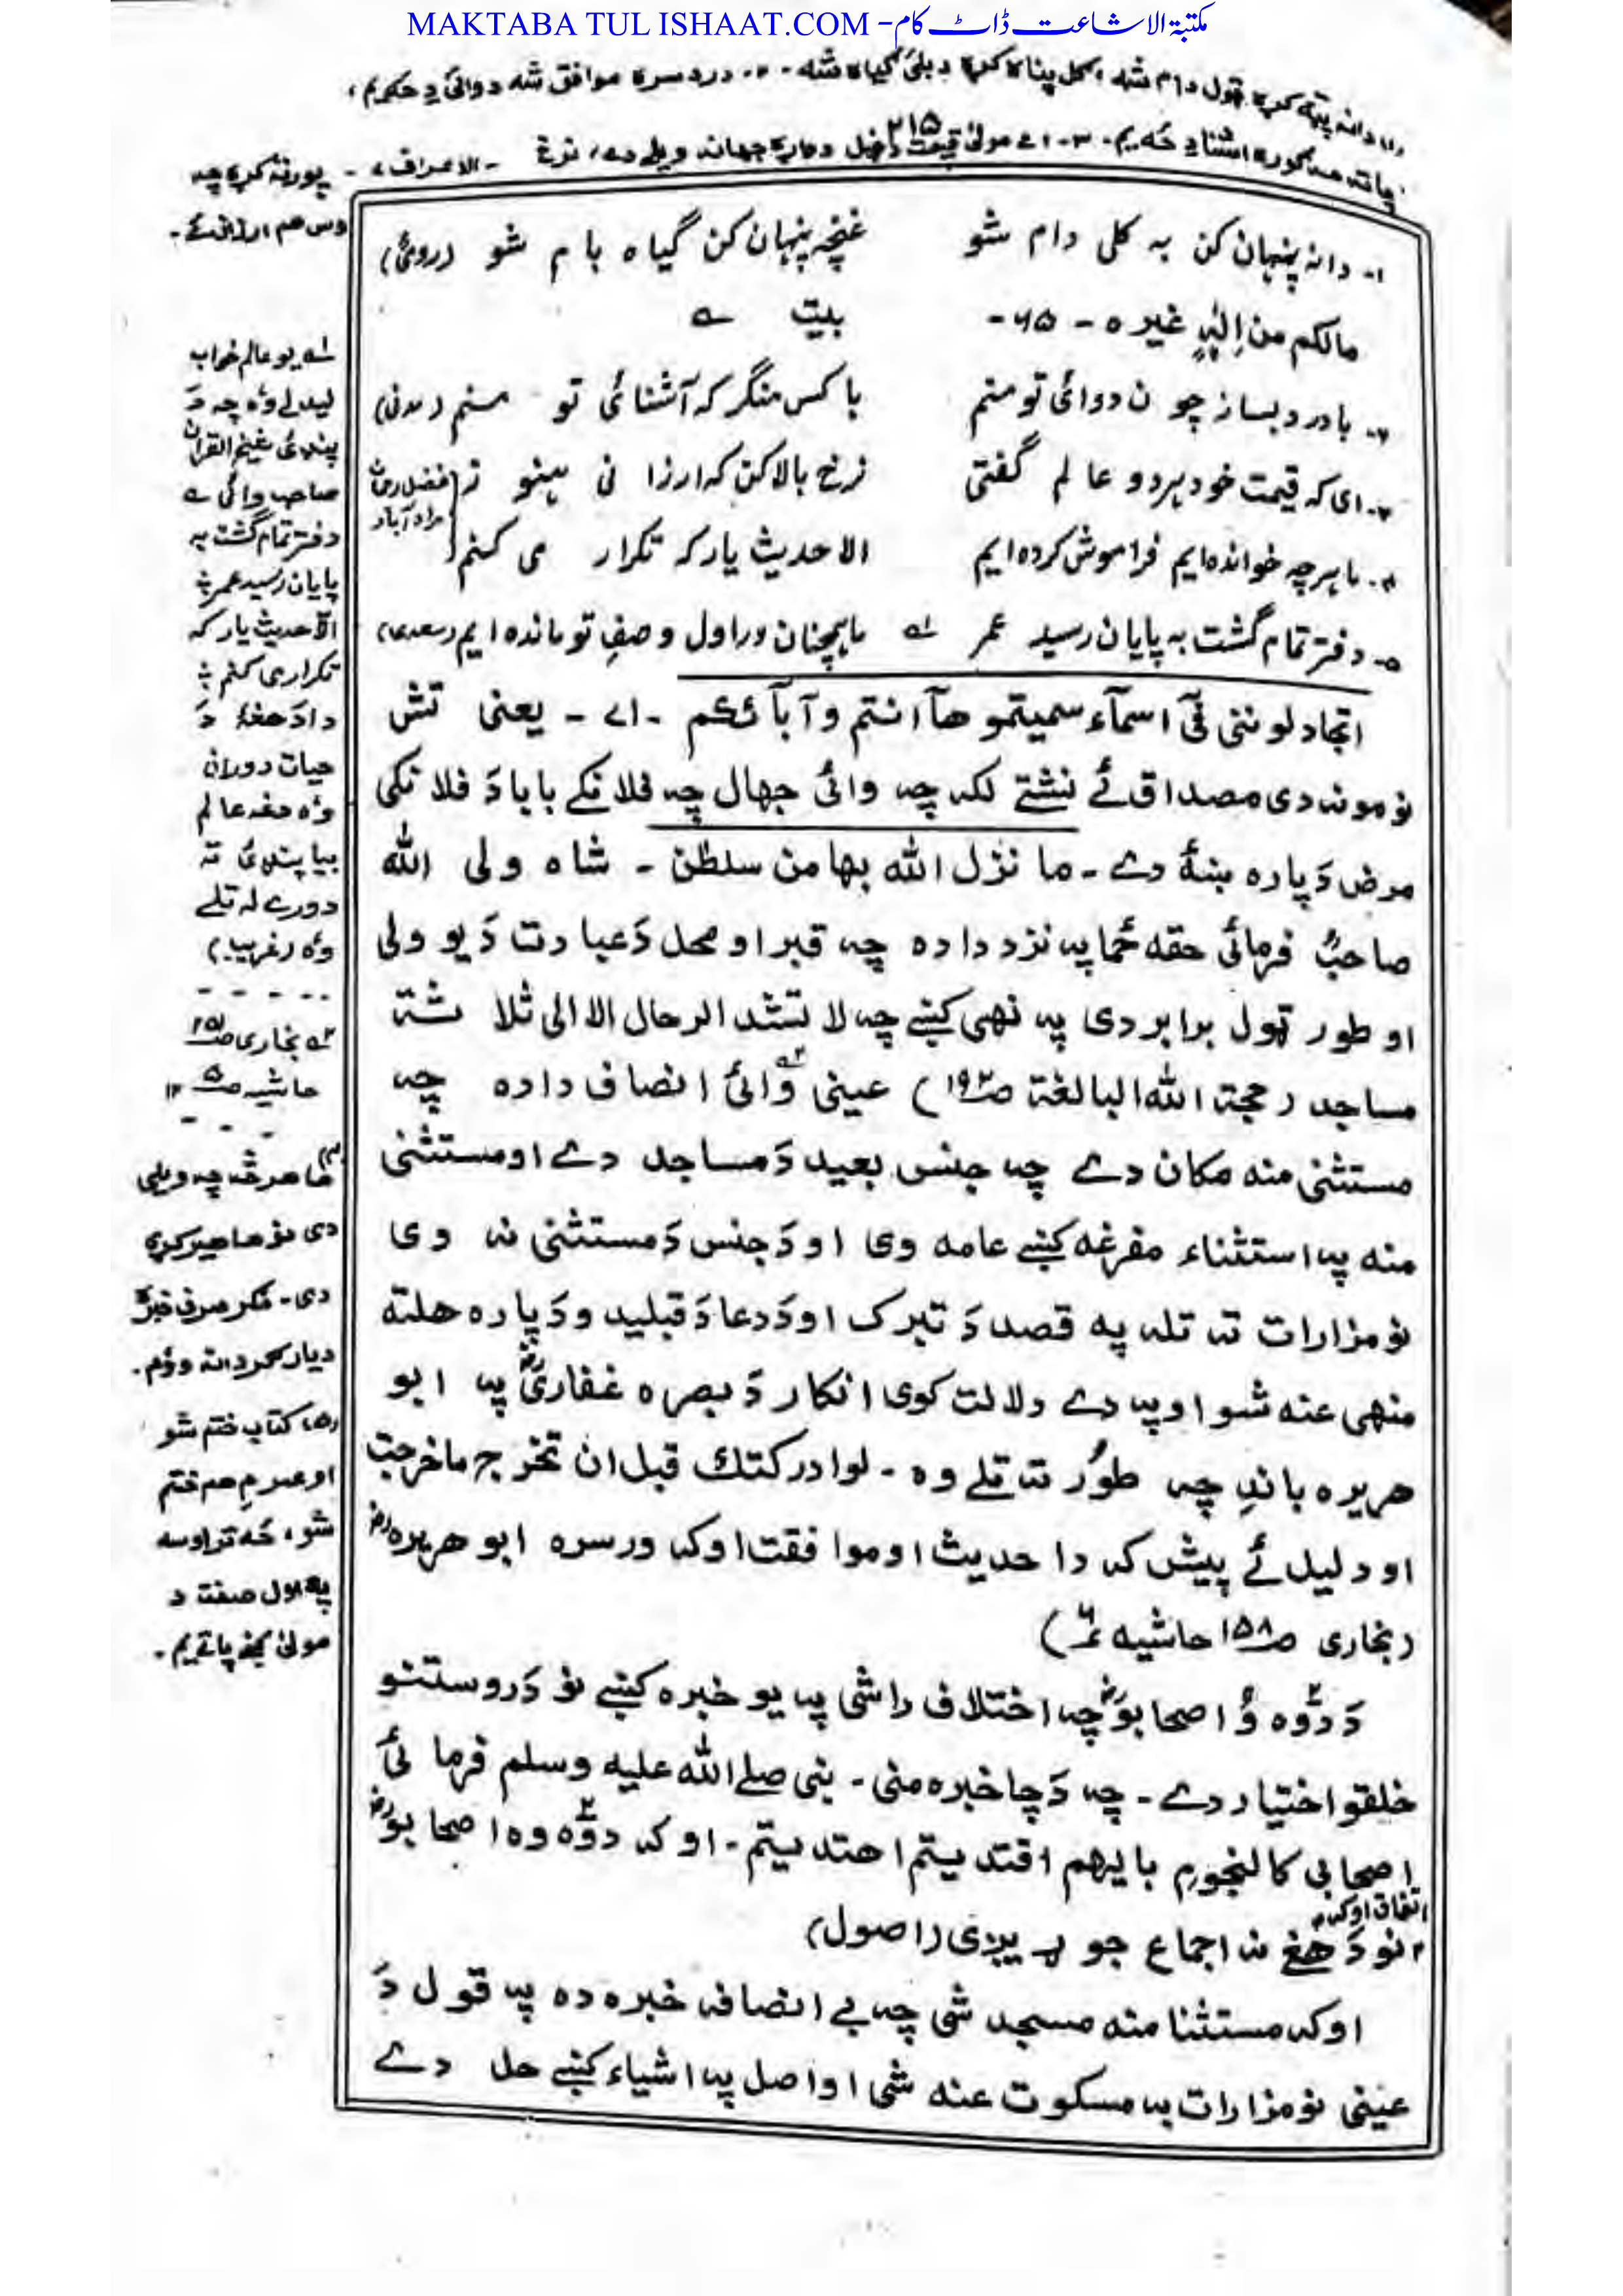 MAKTABA TUL ISHAAT.COM - مکتبۃ الاشاعت ڈاٹ کام
(۱) دانہ پټه کړه ټول دام شه، کل پنا کړه د بلئ ګیاه شه -۲- درد سره موافق شه دوائی دِ حکیم،
مه ګوره اشنا دِ حُه یم -۳- اے مولیٰ قیمت دخپل دواړه جهانه ویلے دے، نرخ
۲۱۵
الاعراف ۷
پورته کړه چه
اوس هم ارزان ئے۔
۱- دانہ پنہان کن بہ کلی دام شو غنچہ پنہان کن گیاہ بام شو (رومیؒ)
مالکم من اِلٰہٍ غیرہ - ۶۵ - بیت ؎
۲- بادرد بساز چون دوائی تو منم باکس منگر کہ آشنائی تو منم (مدنی)
۳- ای کہ قیمت خود ہر دو عالم گفتی نرخ بالا کن کہ ارزانی ہنوز (فضل رحمٰن
مراد آباد
۴- ماہرچہ خواندہ ایم فراموش کردہ ایم الا حدیث یار کہ تکرار می کنم
۵- دفتر تمام گشت بہ پایان رسید عمر ۱؎ ماہمچنان در اول وصفِ تو ماندہ ایم (سعدی)
اتجادلوننی فیٓ اسمآء سمیتموھآ انتم وآبآئکم - ۷۱ - یعنی تش
نومونه دی مصداق ئے نشتے لکه چه وائی جهال چه فلانکے بابا دَ فلانکی
مرض دَپاره ښۀ دے - ما نزل الله بها من سلطٰن - شاه ولی الله
صاحبؒ فرمائی حقه حُما په نزد داده چه قبر او محل دَ عبادت دَ یو ولی
او طور ټول برابر دی په نهی کښے چه لا تشد الرحال الا الی ثلاثة
مساجد (حجة الله البالغة ص۱۹۲) عینی ۲؎ وائی انصاف داده چه
مستثنی منه مکان دے چه جنس بعید دَ مساجد دے او مستثنی
منه په استثناء مفرغه کښے عامه وی او دَ جنس دَ مستثنی نه وی
نو مزارات ته تله په قصد دَ تبرک او دَ دعا دَ قبلیدو دَپاره هلته
منهی عنه شو او په دے دلالت کوی انکار دَ بصره غفاریؓ په ابو
هریره باندِ چه طوُر ته تلے وه - لو ادرکتك قبل ان تخرج ما خرجت
او دلیل ئے پیش که دا حدیث او موافقت اوکه ورسره ابو هریرهؓ
(بخاری ص۱۵۸ حاشیه ۶)
دَ دوّه وُ اصحابوؓ چه اختلاف راشی په یو خبره کښے نو دَ روستنو
خلقو اختیار دے - چه دَ چا خبره منی - نبی صلے الله علیه وسلم فرمائی
اصحابی کالنجوم بایهم اقتدیتم اهتدیتم - او که دوّه وه اصحابوؓ
اتفاق اوکه
نو دَ هغے نه اجماع جوړیږی (اصول)
اوکه مستثنا منه مسجد شی چه بے انصافه خبره ده په قول دَ
عینی نو مزارات به مسکوت عنه شی او اصل په اشیاء کښے حل دے
۱؎ یو عالم خواب
لیدلے وه چه دَ
پنڈئ شیخ القرآن
صاحب وائی ؎
دفتر تمام گشت بہ
پایان رسید عمر
الا حدیث یار کہ
تکرار می کنم
دا دَ هغۀ دَ
حیات دوران
وه هغه عالم
بیا پنڈئ ته
دورے له تلے
وه (غریب)
۲؎ بخاری ص۱۵۸
حاشیه ص۵ ۱۲
(۴) ما هرڅه چه ویلی
دی نو ما هیر کړی
دی - مگر صرف خبره
دیار ګردانه ووم۔
(۵) کتاب ختم شو
او عمرمِ هم ختم
شو، حُه تر اوسه
په اول صفت دَ
مولیٰ کښے پاتے یم۔